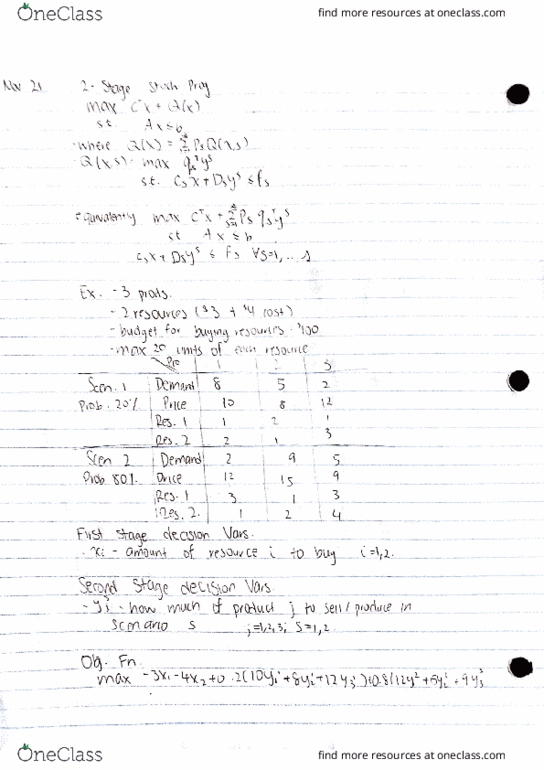 OneClass
find more resources at oneclass.com
Nov 21 2-Stage Stoch Prog
max cᵀx + Q(x)
st. Ax ≤ b
where Q(x) = Σ Ps Q(x,s)
Q(x,s) = max qsᵀyˢ
s.t. Csx + Dsyˢ ≤ fs
Equivalently max cᵀx + Σ Ps qsᵀyˢ
st Ax ≤ b
Csx + Dsyˢ ≤ fs ∀s=1,...
Ex. - 3 prods.
- 2 resources ($3 + $4 cost)
- budget for buying resources $100
- max 20 units of each resource
1 3
Scen. 1 Demand 8 5 2
Prob. 20% Price 10 8 12
Res. 1 1 2 1
Res. 2 2 1 3
Scen 2 Demand 2 9 5
Prob 80% Price 12 15 9
Res. 1 3 1 3
Res. 2. 1 2 4
First stage decision Vars.
- xi - amount of resource i to buy i=1,2.
Second Stage decision Vars
- yjˢ - how much of product j to sell/produce in
scenario s j=1,2,3; s=1,2
Obj. Fn.
max -3x₁ -4x₂ + 0.2(10y
OneClass
find more resources at oneclass.com